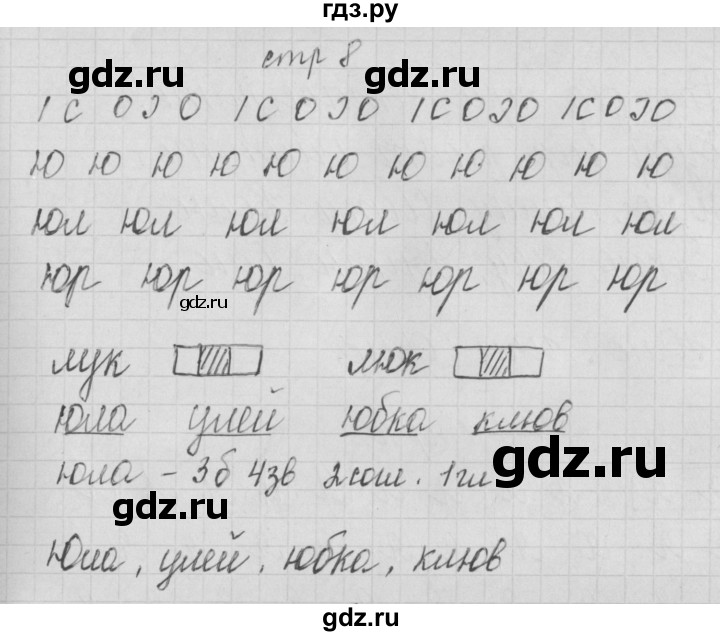 гдз.ру
стр 8
gdz.ru gdz.ru
I С О Э О I С О Э О I С О Э О I С О Э О
ю ю ю ю ю ю ю ю ю ю ю
юл юл юл юл юл юл юл
юр юр юр юр юр юр юр
gdz.ru
лук люк
юла улей юбка клюв
юла - 3б 4зв 2согл. 1гл
gdz.ru gdz.ru
Юла, улей, юбка, клюв
gdz.ru